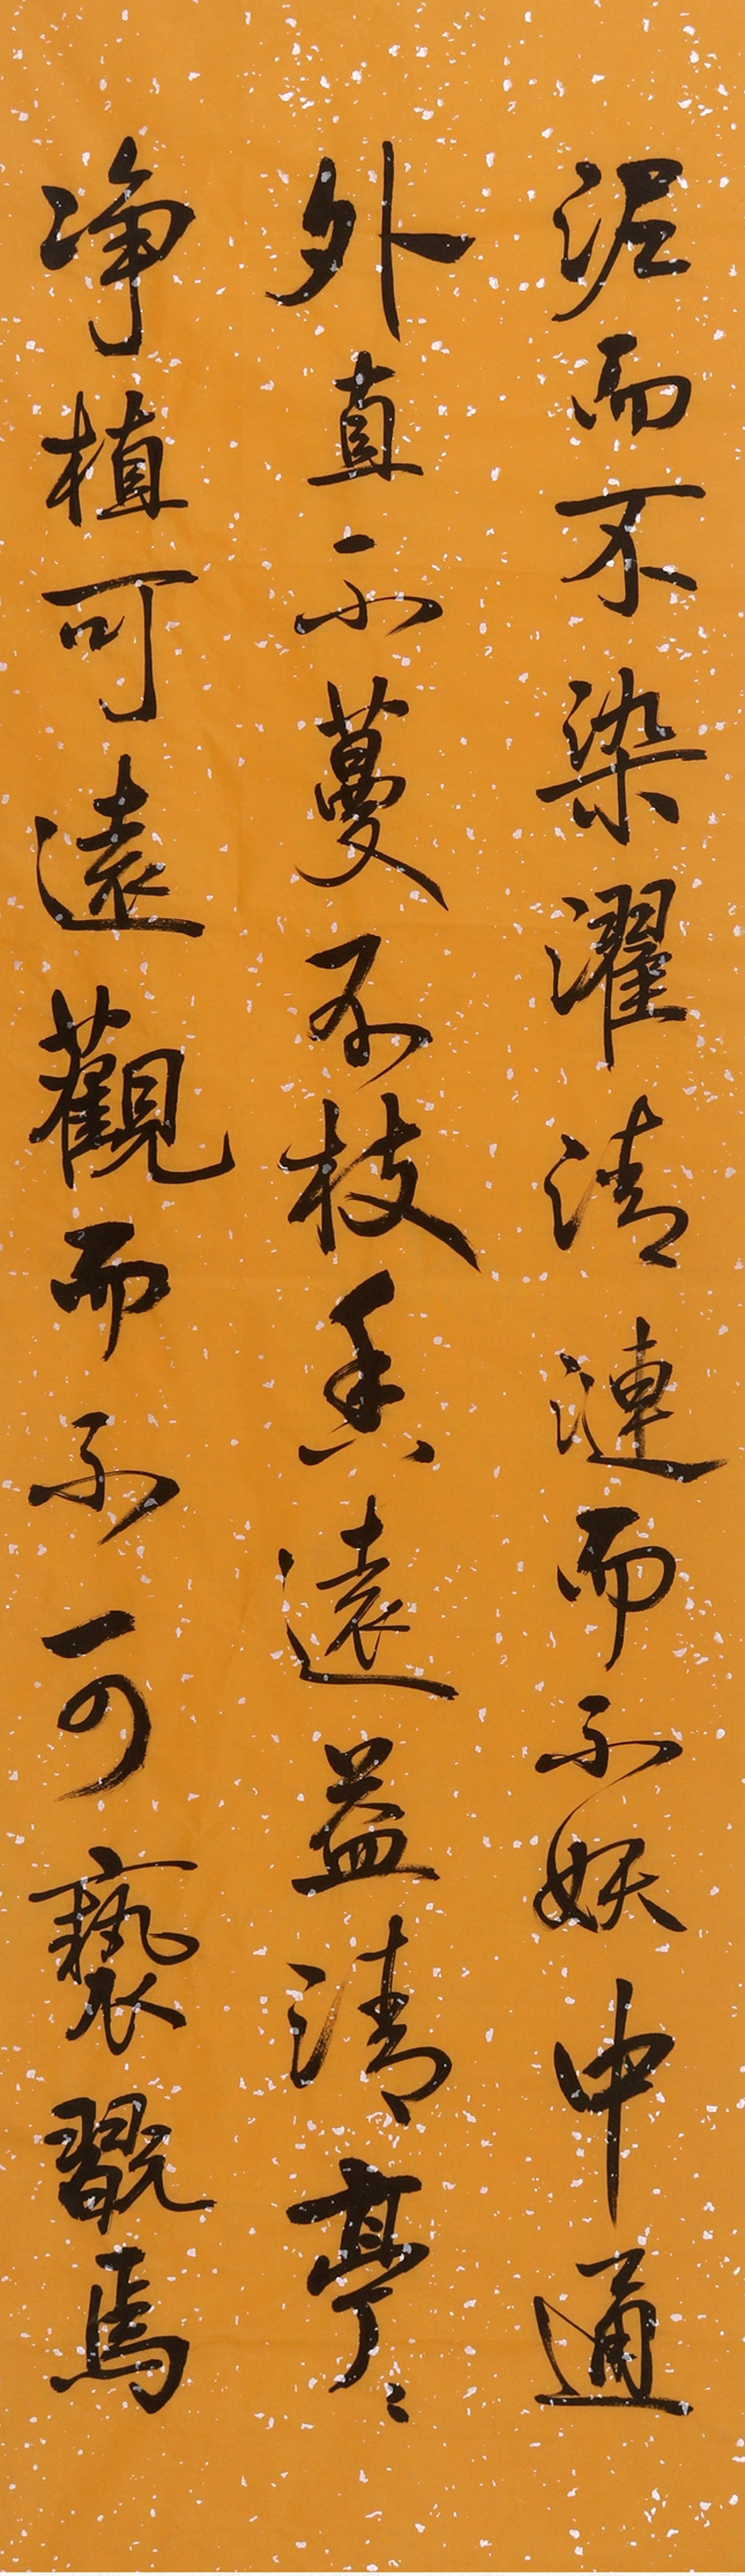 泥而不染濯清漣而不妖中通
外直不蔓不枝香遠益清亭〻
净植可遠觀而不可褻翫焉